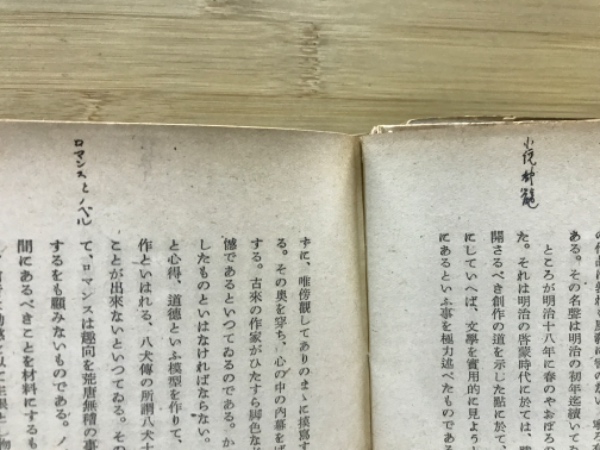 小説神髄
ある。その名聲は明治の初年迄續いても
ところが明治十八年に春のやおぼろの
た。それは明治の啓蒙時代に於ては、
開さるべき創作の道を示した點に於て、
にしていへば、文學を實用的に見ようと
にあるといふ事を極力述べたものである
ロマンスとノベル
ずに、唯傍觀してありのまゝに摸寫す
る。その奥を穿ち、心の中の内幕をば
する。古來の作家がひたすら脚色な
憾であるといつてゐるのである。か
したものといはなければならない。
と心得、道德といふ模型を作りて、
作といはれる、八犬傳の所謂八犬士
ことが出來ないといつてゐる。その
て、ロマンスは趣向を荒唐無稽の事
するをも顧みないものである。ノ
間にあるべきことを材料にするも